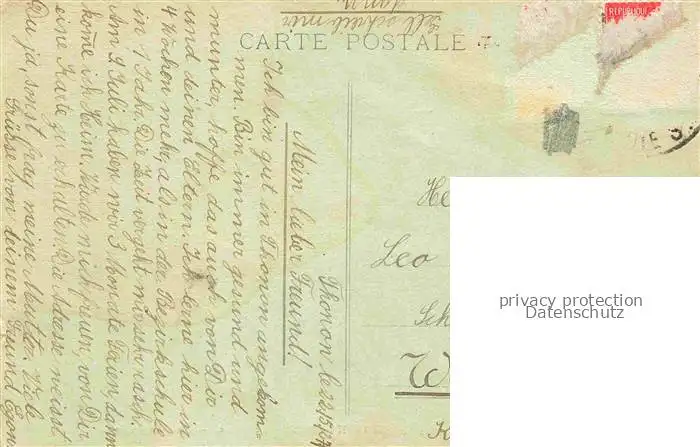 CARTE POSTALE
REPUBLIQUE
Thonon le 22/5/17
Mein lieber Freund!
Ich bin gut in Thonon angekom-
men. Bin immer gesund und
munter, hoffe das auch von Dir
und deinen Eltern. Ich lerne hier in
4 Wochen mehr, als in der Bezirkschule
in 1 Jahr. Die Zeit vergeht mir sehr rasch.
Am 9. Juli haben wir 3 Monate Ferien, dann
komme ich Heim. Würde mich freuen, von Dir
eine Karte zu erhalten. Die Adresse weisst
Du ja, sonst frag meine Mutter. Viele
Grüsse von deinem Freund Egon
Leo
privacy protection
Datenschutz